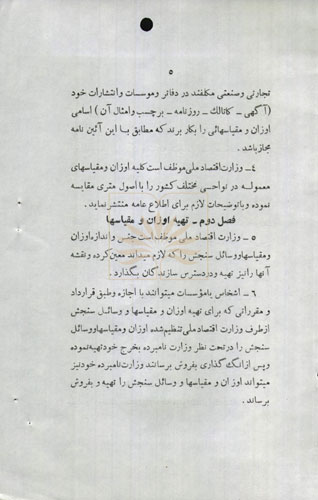 ۵
تجارتی وصنعتی مکلفند در دفاتر وموسسات وانتشارات خود
(آگهی ـ کاتالك ـ روزنامه ـ برچسب وامثال آن ) اسامی
اوزان و مقیاسهائی را بکار برند که مطابق با این آئین نامه
مجاز باشد .
۴ـ وزارت اقتصاد ملی موظف است کلیه اوزان ومقیاسهای
معموله در نواحی مختلف کشور را با اصول متری مقایسه
نموده وباتوضیحات لازم برای اطلاع عامه منتشر نماید .
فصل دوم ـ تهیه اوزان و مقیاسها
۵ ـ وزارت اقتصاد ملی موظف است جنس واندازه اوزان
ومقیاسها ووسائل سنجش را که لازم میداند معین کرده و نقشه
آنها رانیز تهیه ودردسترس سازندگان بگذارد .
۶ ـ اشخاص یامؤسسات میتوانند با اجازه وطبق قرارداد
و مقرراتی که برای تهیه اوزان و مقیاسها و وسائل سنجش
ازطرف وزارت اقتصاد ملی تنظیم شده اوزان ومقیاسها ووسائل
سنجش را درتحت نظر وزارت نامبرده بخرج خود تهیه نموده
وپس از انگ گذاری بفروش برسانند وزارت نامبرده خود نیز
میتواند اوزان و مقیاسها و وسائل سنجش را تهیه و بفروش
برساند .